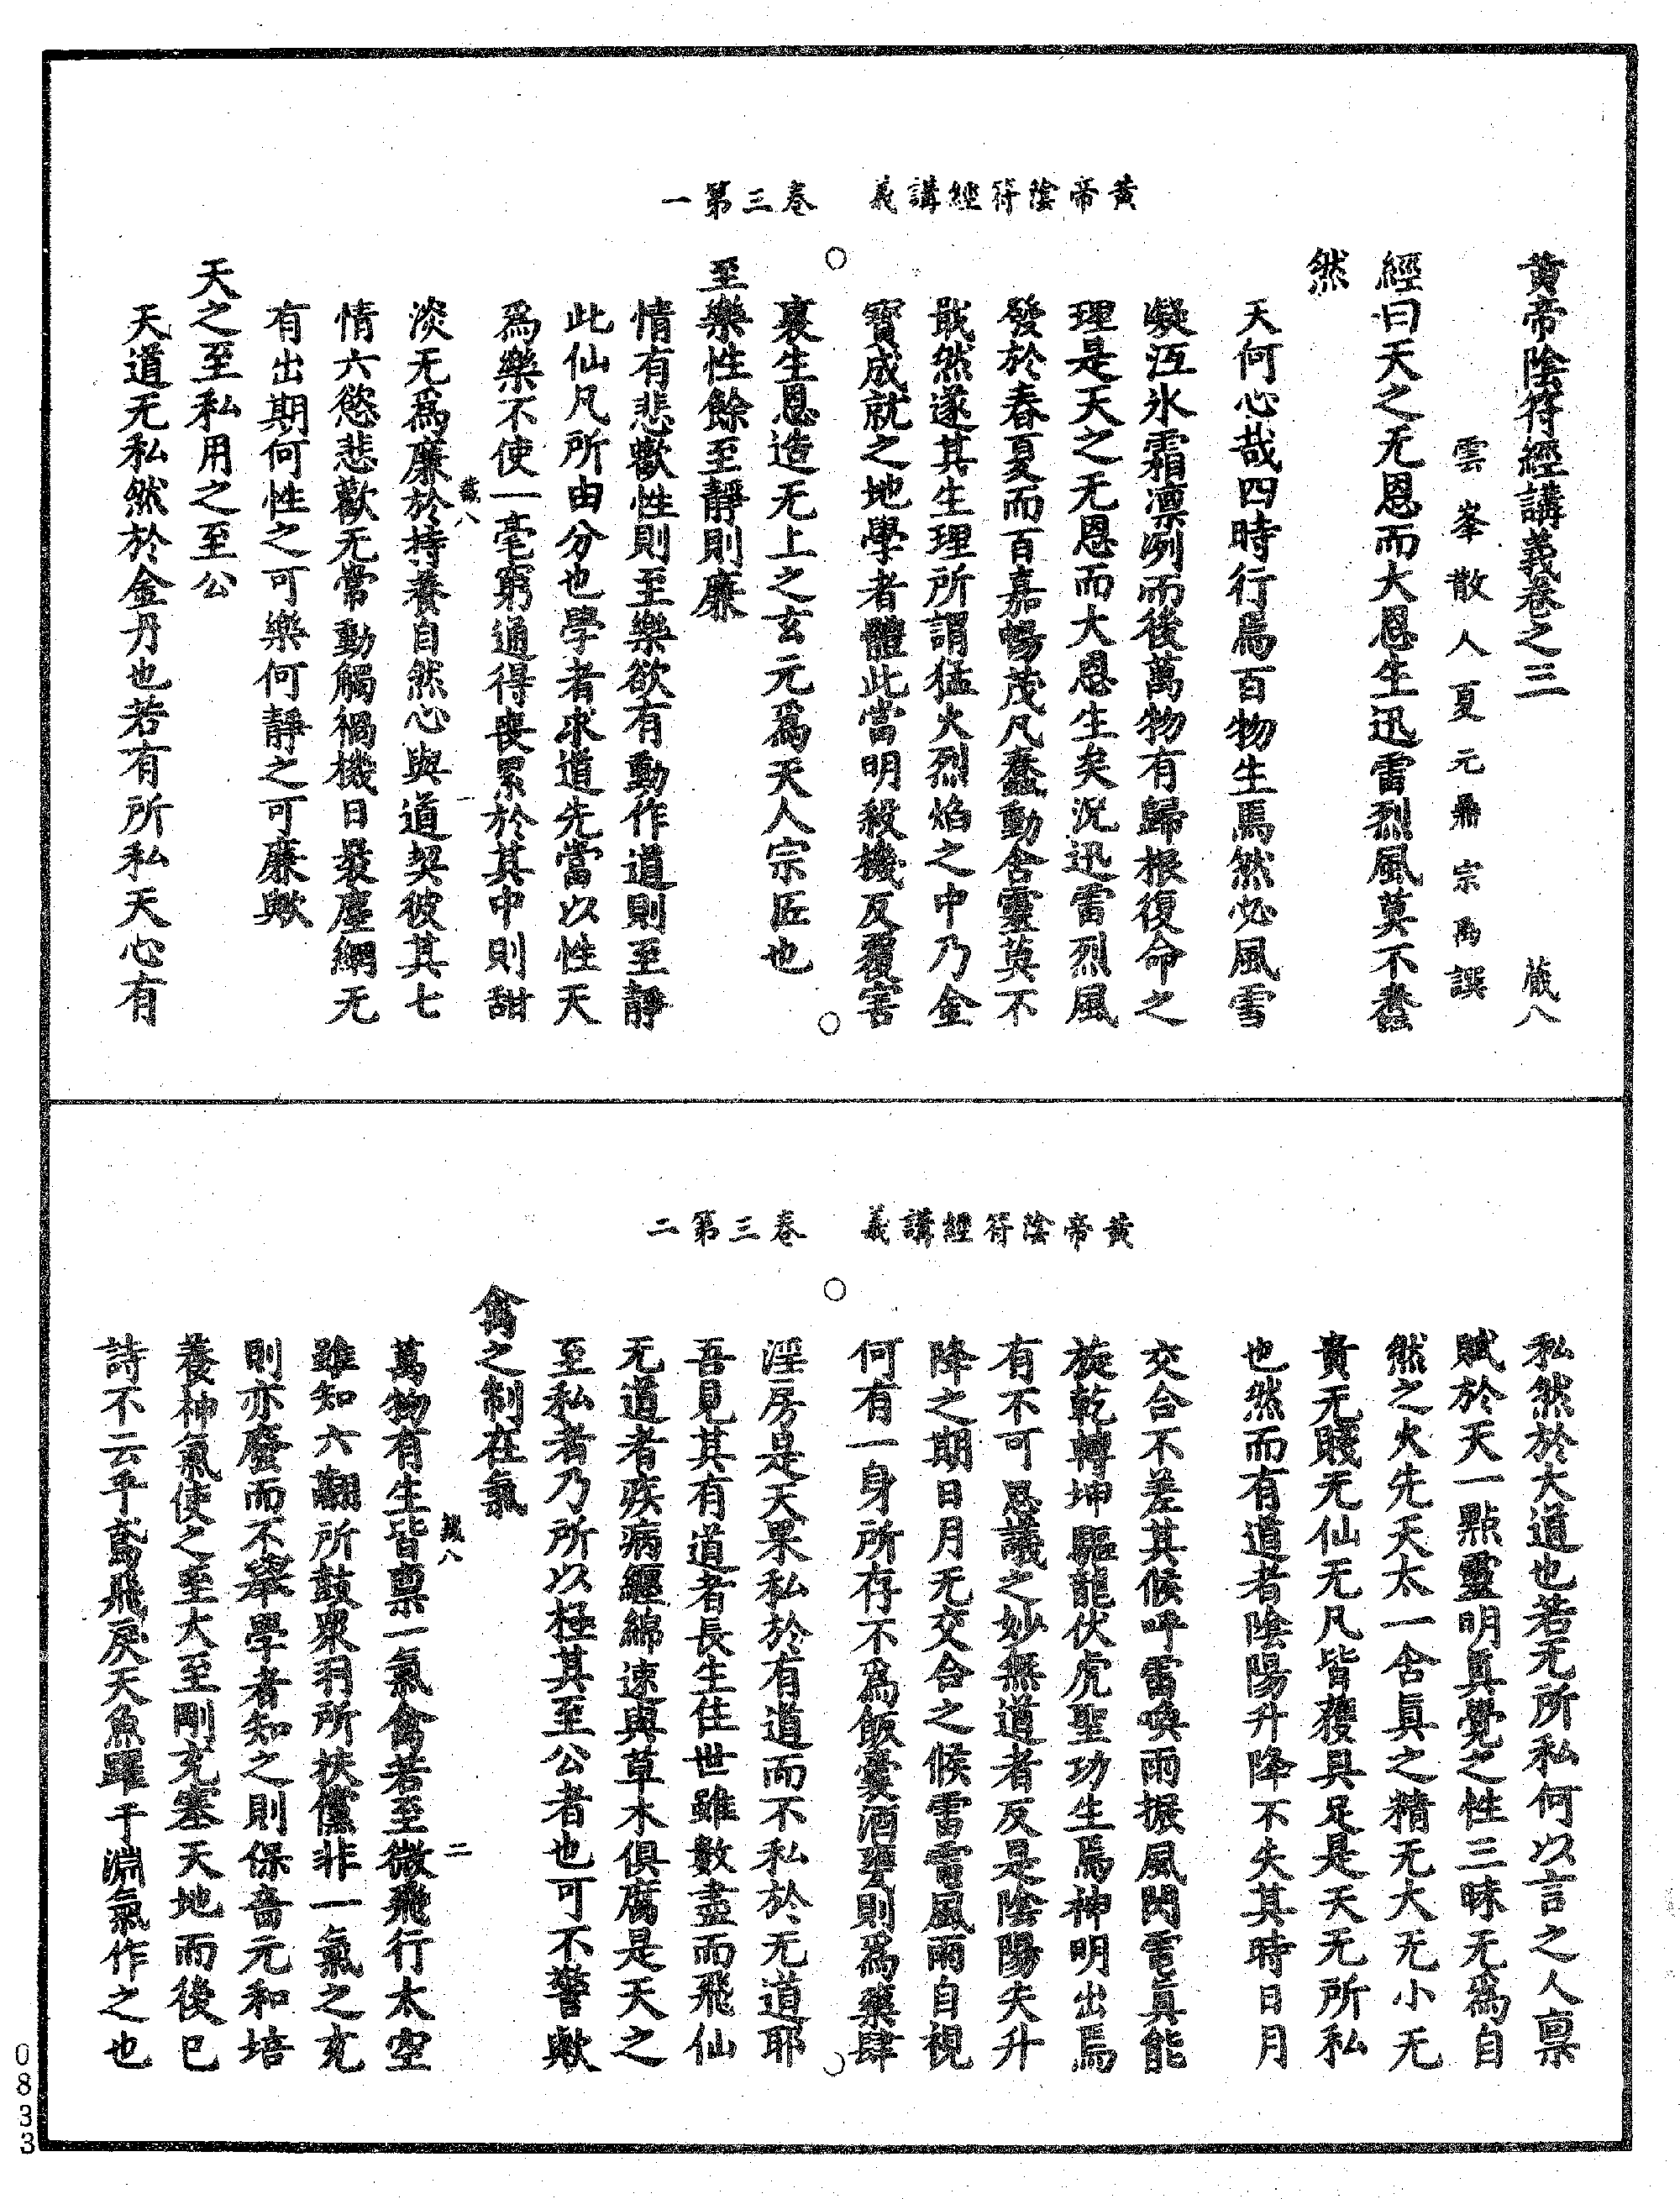 黃帝陰符經講義　卷三第一
黃帝陰符經講義卷之三　藏八
雲峯散人夏元鼎宗禹譔
經曰天之无恩而大恩生迅雷烈風莫不蠢
然
天何心哉四時行焉百物生焉然必風雪
凝沍氷霜凛冽而後萬物有歸根復命之
理是天之无恩而大恩生矣況迅雷烈風
發於春夏而百嘉暢茂凡蠢動含靈莫不
戢然遂其生理所謂猛火烈焰之中乃金
寶成就之地學者體此當明殺機反覆害
裏生恩造无上之玄元爲天人宗匠也
至樂性餘至靜則廉
情有悲歡性則至樂欲有動作道則至靜
此仙凡所由分也學者求道先當以性天
爲樂不使一毫窮通得喪累於其中則甜
藏八　一
淡无爲廉於持養自然心與道契彼其七
情六慾悲歡无常動觸禍機日裰塵網无
有出期何性之可樂何靜之可廉歟
天之至私用之至公
天道无私然於金丹也若有所私天心有
黃帝陰符經講義　卷三第二
私然於大道也若无所私何以言之人禀
賦於天一點靈明真覺之性三昧无爲自
然之火先天太一含真之精无大无小无
貴无賤无仙无凡皆獲具足是天无所私
也然而有道者陰陽升降不失其時日月
交合不差其候呼雷喚雨振風閃電真能
旋乾轉坤驅龍伏虎聖功生焉神明出焉
有不可思議之妙無道者反是陰陽失升
降之期日月无交合之候雷電風雨自視
何有一身所存不爲飯囊酒甕則爲藥肆
淫房是天果私於有道而不私於无道耶
吾見其有道者長生住世雖數盡而飛仙
无道者疾病纒綿速與草木俱腐是天之
至私者乃所以極其至公者也可不警歟
禽之制在氣
藏八　二
萬物有生皆禀一氣禽若至微飛行太空
雖知六翮所鼓衆羽所扶儻非一氣之充
則亦廢而不舉學者知之則保嗇元和培
養神氣使之至大至剛充塞天地而後已
詩不云乎鳶飛戾天魚躍于淵氣作之也
0833